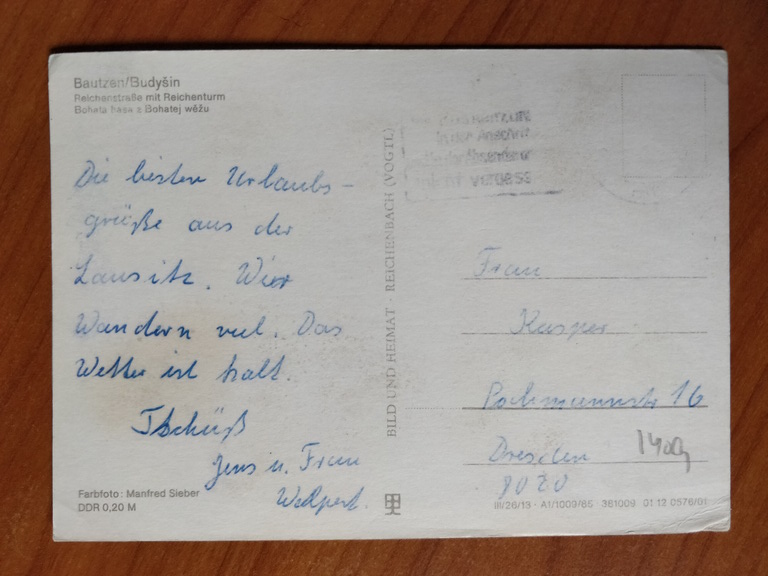 Bautzen/Budyšin
Reichenstraße mit Reichenturm
Bohata hasa z Bohatej wěžu
Die besten Urlaubs-
grüße aus der
Lausitz. Wier
Wandern viel. Das
Wetter ist kalt.
Tschüß
Jens u. Frau
Farbfoto: Manfred Sieber
DDR 0,20 M
BILD UND HEIMAT · REICHENBACH (VOGTL)
in der Anschrift
nicht vergessen
Frau
Kasper
16
Dresden
8020
III/26/13 · A1/1009/65 · 361009 01 12 0576/01